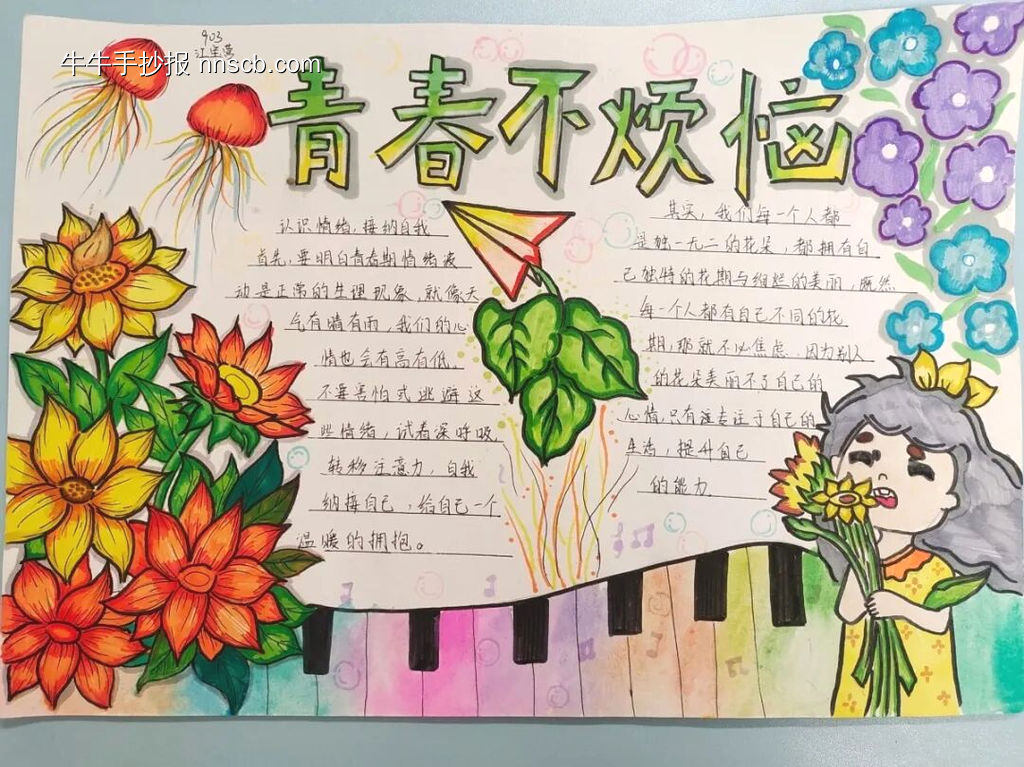 903
牛牛手抄报 nnscb.com
青春不烦恼
认识情绪,接纳自我
首先,要明白青春期情绪波
动是正常的生理现象,就像天
气有晴有雨,我们的心
情也会有高有低。
不要害怕或逃避这
些情绪,试着深呼吸,
转移注意力,自我
纳接自己,给自己一个
温暖的拥抱。
其实,我们每一个人都
是独一无二的花朵,都拥有自
己独特的花期与绚烂的美丽,既然
每一个人都有自己不同的花
期,那就不必焦虑.因为别人
的花朵美丽不了自己的
心情,只有专注于自己的
生活,提升自己
的能力